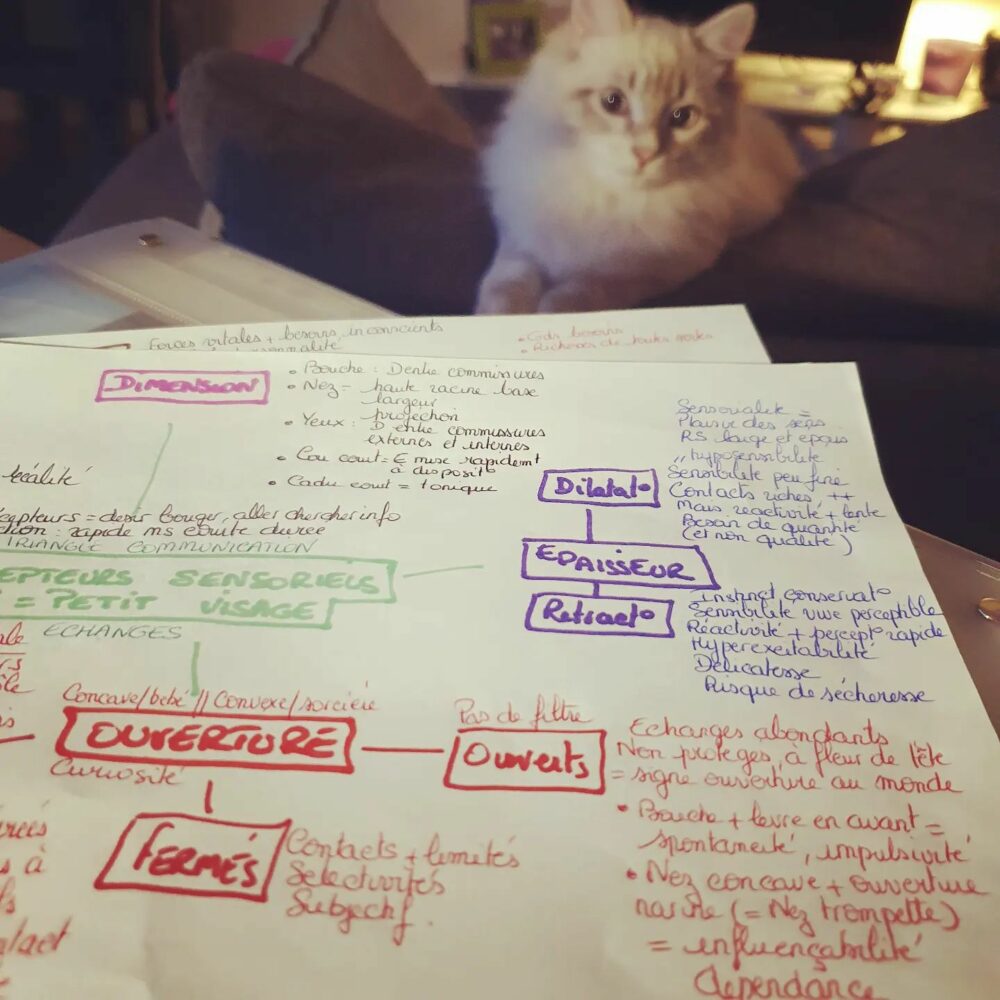 Forces vitales + besoins inconscients
Cads besoins
Richesses de toutes
DIMENSION
• Bouche : D entre commissures
• Nez = haute racine base
largeur
projection
• Yeux : D entre commissures
externes et internes
• Cou court = E mise rapidemt
à disposit°
• Cadu court = tonique
écalité
cepteurs = desir bouger, aller chercher info
tion : rapide ms courte durée
TRIANGLE COMMUNICATION
EPTEURS SENSORIELS
= PETIT VISAGE
ECHANGES
Sensorialité =
Plaisir des sens
RS large et epais
"hyposensibilite
Sensibilite peu fine
Contacts riches ++
Mais reactivité + lente
Besoin de quantité
(et non qualité)
Dilatat°
EPAISSEUR
Retract°
Instinct conservat°
Sensibilite vive perceptible
Réactivité + percept° rapide
Hyperexcitabilité
Délicatesse
Risque de sécheresse
Concave/bébé // Convexe/sorcière
OUVERTURE
Curiosité
Pas de filtre
Ouverts
Echanges abondants
Non protégés, à fleur de tête
= signe ouverture au monde
• Bouche + levre en avant =
spontaneité, impulsivité
• Nez concave + ouverture
narine (= Nez trompette)
= influençabilité
dependance
FERMÉS
Contacts + limités
Selectivités
Subjectif.